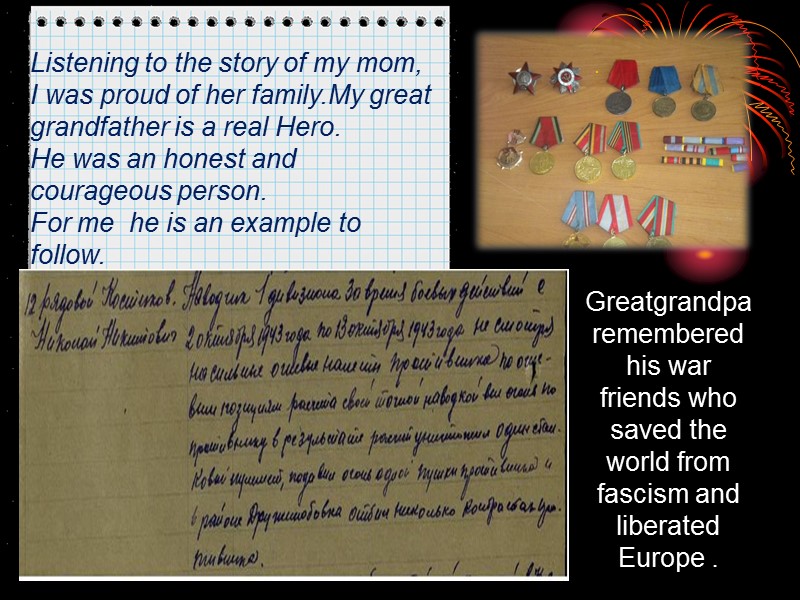 Listening to the story of my mom,
I was proud of her family.My great
grandfather is a real Hero.
He was an honest and
courageous person.
For me he is an example to
follow.
12 рядовой Костиков. Наводчик 1 дивизиона За время боевых действий с
Николай Никитович 2 октября 1943 года по 13 октября 1943 года не смотря
на сильные огневые налеты противника по огне-
вым позициям расчета своей точной наводкой вел огонь по
противнику в результате расчет уничтожил один стан-
ковый пулемет, подавил огонь одной пушки противника и
в районе Дружелюбовка отбил несколько контратак про-
тивника.
Greatgrandpa
remembered
his war
friends who
saved the
world from
fascism and
liberated
Europe .